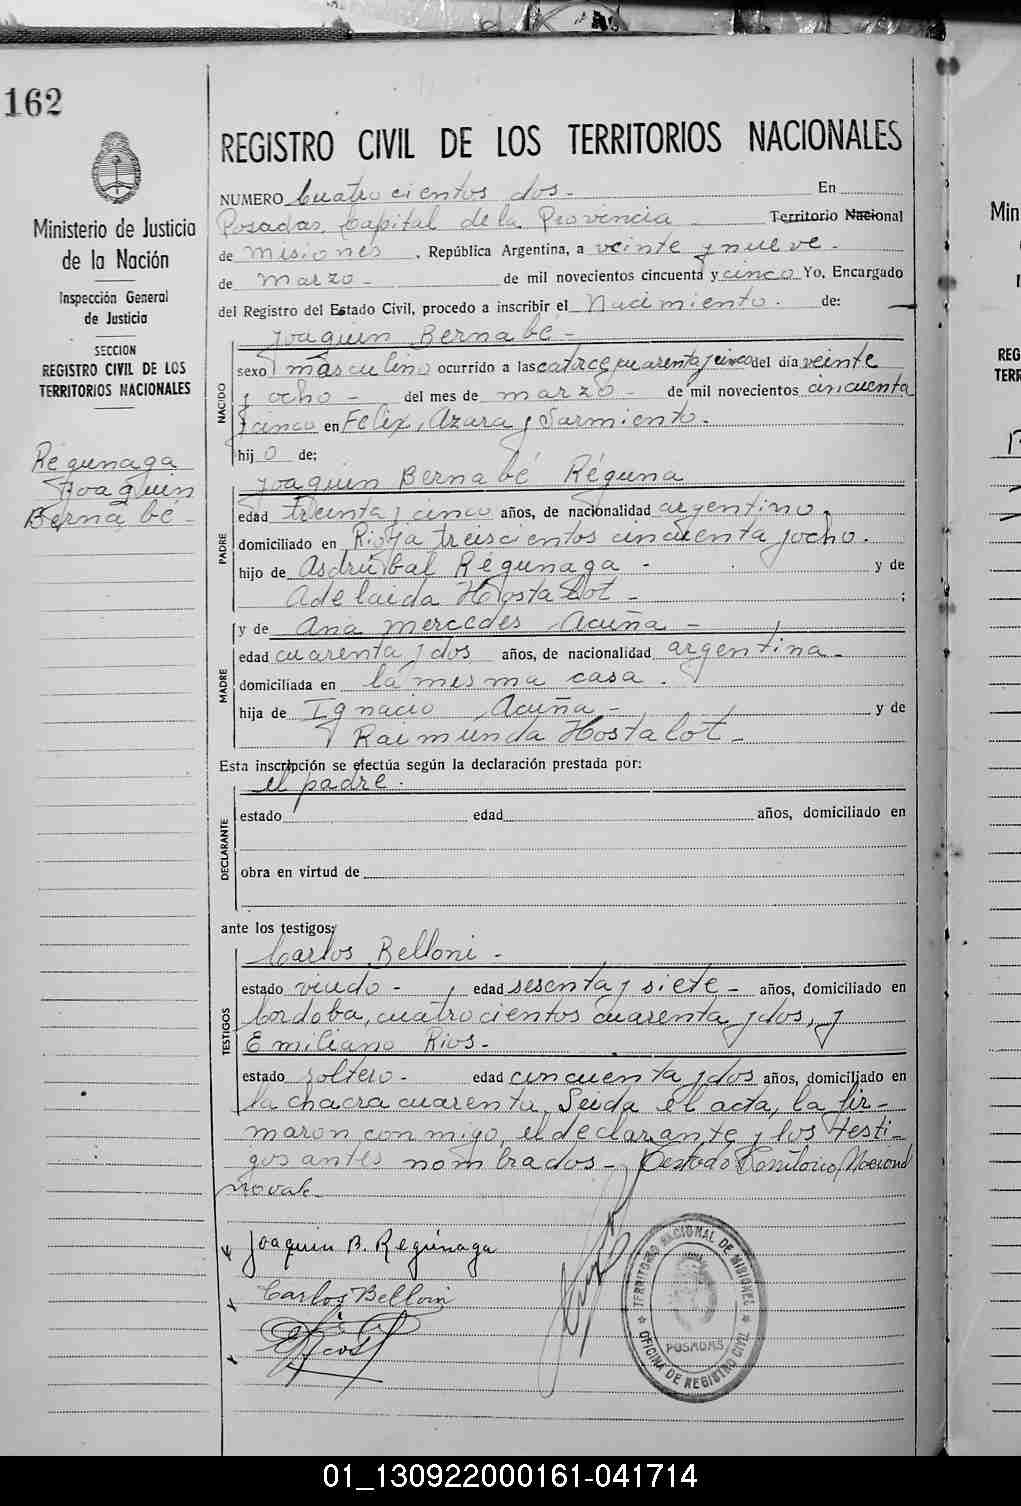 162
Ministerio de Justicia
de la Nación
Inspección General
de Justicia
SECCION
REGISTRO CIVIL DE LOS
TERRITORIOS NACIONALES
Regunaga
Joaquin
Bernabé-
REGISTRO CIVIL DE LOS TERRITORIOS NACIONALES
NUMERO Cuatrocientos dos- En
Posadas, Capital de la Provincia - Territorio Nacional
de Misiones, República Argentina, a veinte y nueve-
de marzo- de mil novecientos cincuenta y cinco Yo, Encargado
del Registro del Estado Civil, procedo a inscribir el Nacimiento. de:
Joaquin Bernabé-
NACIDO
sexo masculino ocurrido a las catorce, cuarenta y cinco del día veinte
y ocho- del mes de marzo- de mil novecientos cincuenta
y cinco en Felix, Azara y Sarmiento.
hijo de:
Joaquin Bernabé Réguna
PADRE
edad treinta y cinco años, de nacionalidad argentino,
domiciliado en Rioja treiscientos cincuenta y ocho.
hijo de Asdrúbal Régunaga - y de
Adelaida Hostalot- ;
y de Ana Mercedes Acuña-
MADRE
edad cuarenta y dos años, de nacionalidad argentina-
domiciliada en la misma casa.
hija de Ignacio Acuña- y de
Raimunda Hostalot-
Esta inscripción se efectúa según la declaración prestada por:
el padre.
DECLARANTE
estado edad años, domiciliado en
obra en virtud de
ante los testigos:
Carlos Belloni-
TESTIGOS
estado viudo- edad sesenta y siete- años, domiciliado en
Cordoba, cuatrocientos cuarenta y dos, y
Emiliano Rios-
estado soltero- edad cincuenta y dos años, domiciliado en
la chacra cuarenta, Leida el acta, la fir-
maron conmigo, el declarante y los testi-
gos antes nombrados- Testado Territorio, Nacional
no vale-
Joaquin B. Regúnaga
Carlos Belloni
TERRITORIO NACIONAL DE MISIONES
POSADAS
OFICINA DE REGISTRO CIVIL
Min
REG
TERR
01_130922000161-041714